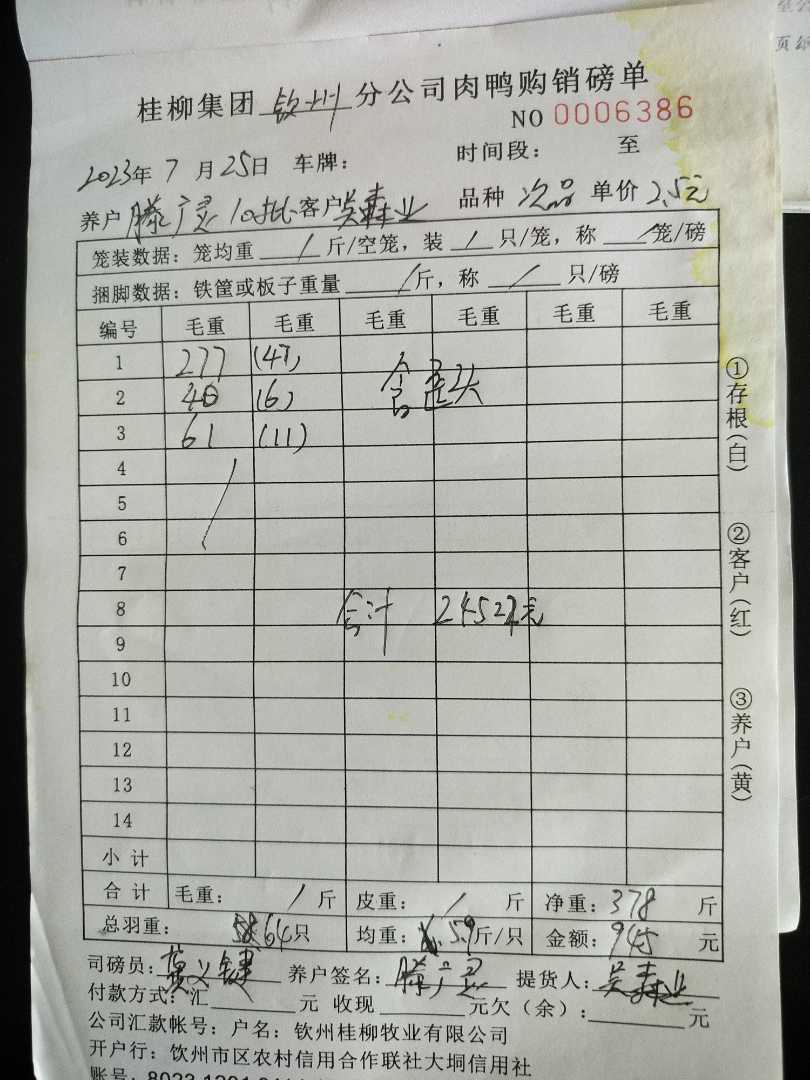 桂柳集团 钦州 分公司肉鸭购销磅单
NO 0006386
2023年 7 月 25日 车牌： 时间段： 至
养户 滕广灵 10批 客户 吴森业 品种 次品 单价 2.5元
笼装数据：笼均重 / 斤/空笼，装 / 只/笼，称 / 笼/磅
捆脚数据：铁筐或板子重量 / 斤，称 / 只/磅
编号 毛重 毛重 毛重 毛重 毛重 毛重
1 277 (47)
2 40 (6) 含歪头
3 61 (11)
4
5
6
7
8 合计 24522元
9
10
11
12
13
14
小计
合计 毛重： / 斤 皮重： / 斤 净重：378 斤
总羽重： 64只 均重： 5.9斤/只 金额：945 元
司磅员：莫义键 养户签名：滕广灵 提货人：吴森业
付款方式：汇 元 收现 元欠（余）： 元
公司汇款帐号：户名：钦州桂柳牧业有限公司
开户行：钦州市区农村信用合作联社大垌信用社
账号：
①存根(白)
②客户(红)
③养户(黄)